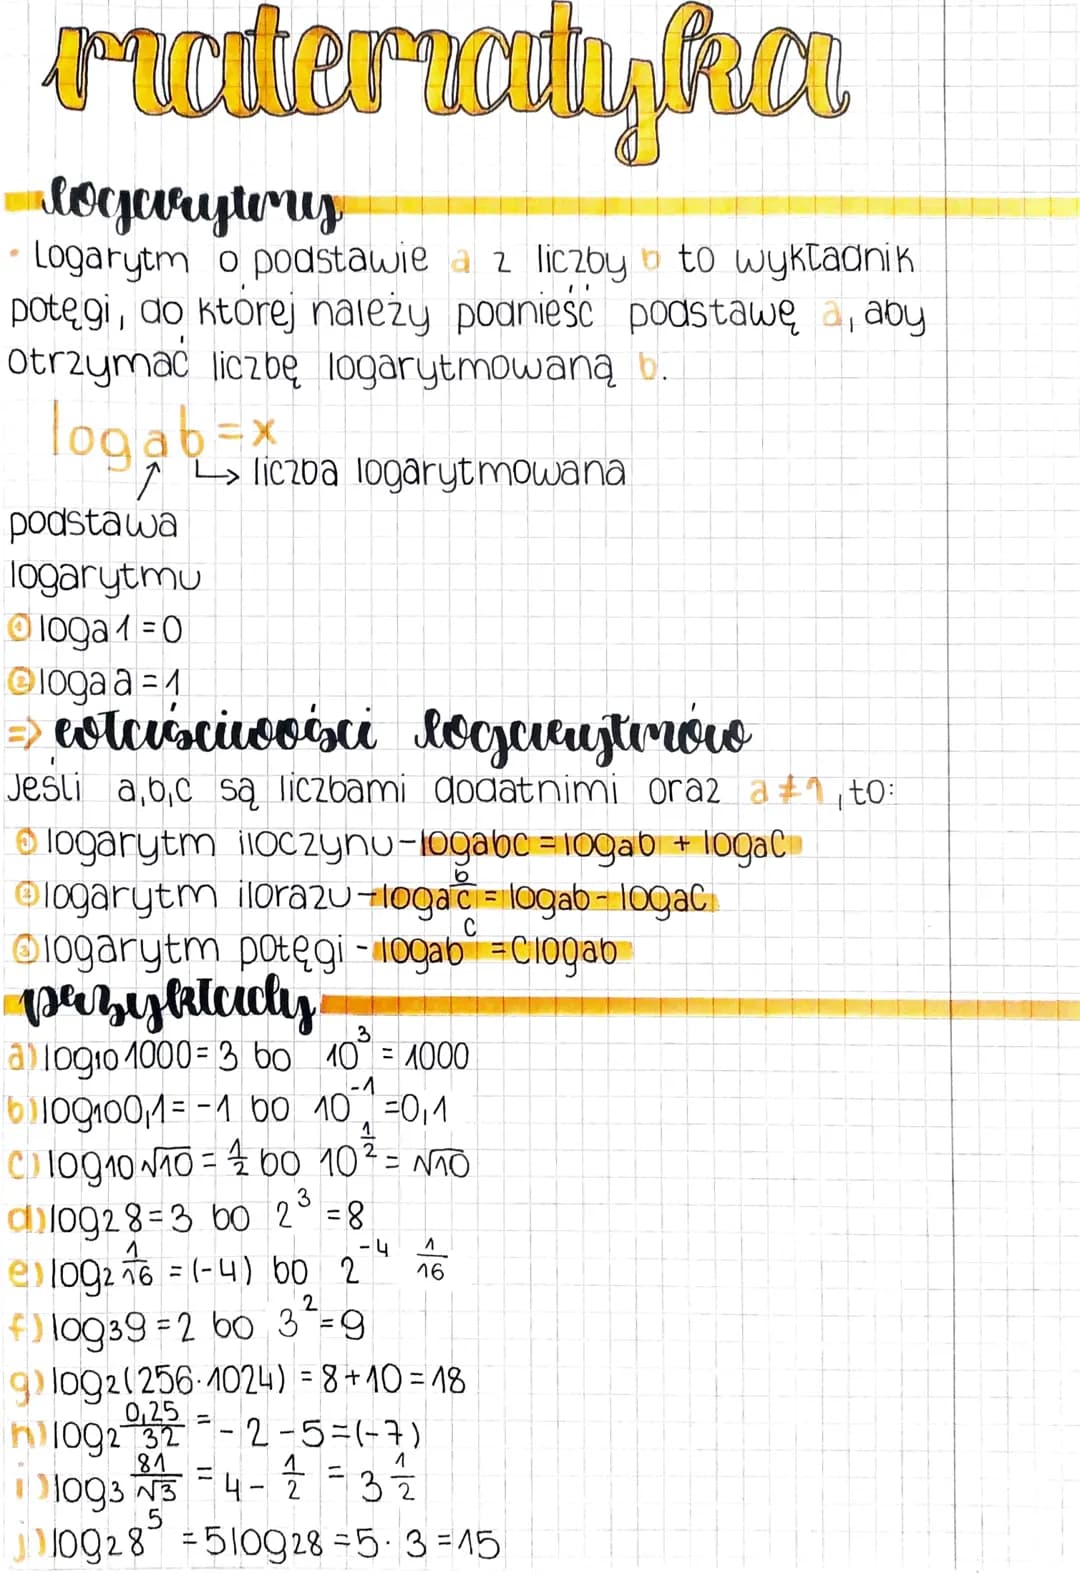 matematyka
logarytmy
• Logarytm o podstawie a z liczby b to wykładnik
potęgi, do której należy podnieść podstawę a, aby
otrzymać liczbę logarytmowaną b.
logab=x
↳ liczba logarytmowana
podstawa
logarytmu
① loga1=0
② logaa=1
=> właściwości logarytmów
Jeśli a,b,c są liczbami dodatnimi oraz a≠1, to:
① logarytm iloczynu-logabc=logab + logac
② logarytm ilorazu-loga b/c = logab-logac
③ logarytm potęgi-logab^c =clogab
przykłady
a) log10 1000=3 bo 10³ = 1000
b) log10 0,1=-1 bo 10⁻¹ =0,1
c) log10 √10 = 1/2 bo 10^1/2 = √10
d) log2 8=3 bo 2³ =8
e) log2 1/16 =(-4) bo 2⁻⁴ 1/16
f) log3 9=2 bo 3²=9
g) log2(256·1024) =8+10=18
h) log2 0,25/32 =-2-5=(-7)
i) log3 81/√3 =4- 1/2 = 3 1/2
j) log2 8⁵ =5log2 8=5·3=15